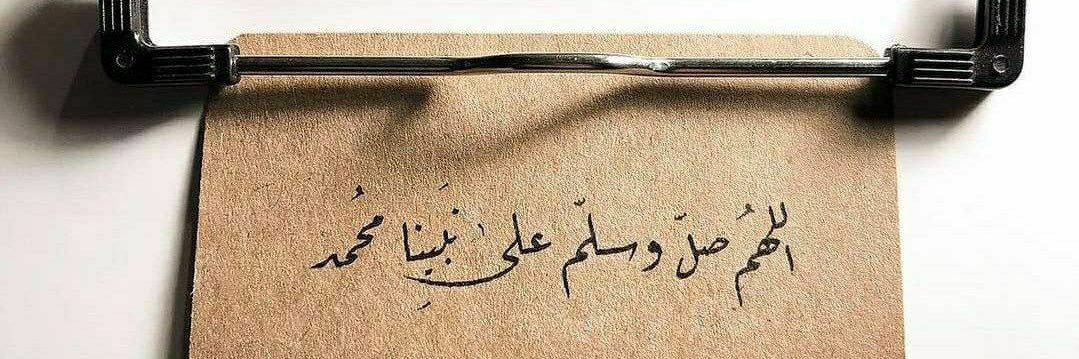 اللهُم صلّ وسلّم على نَبِينا مُحمد